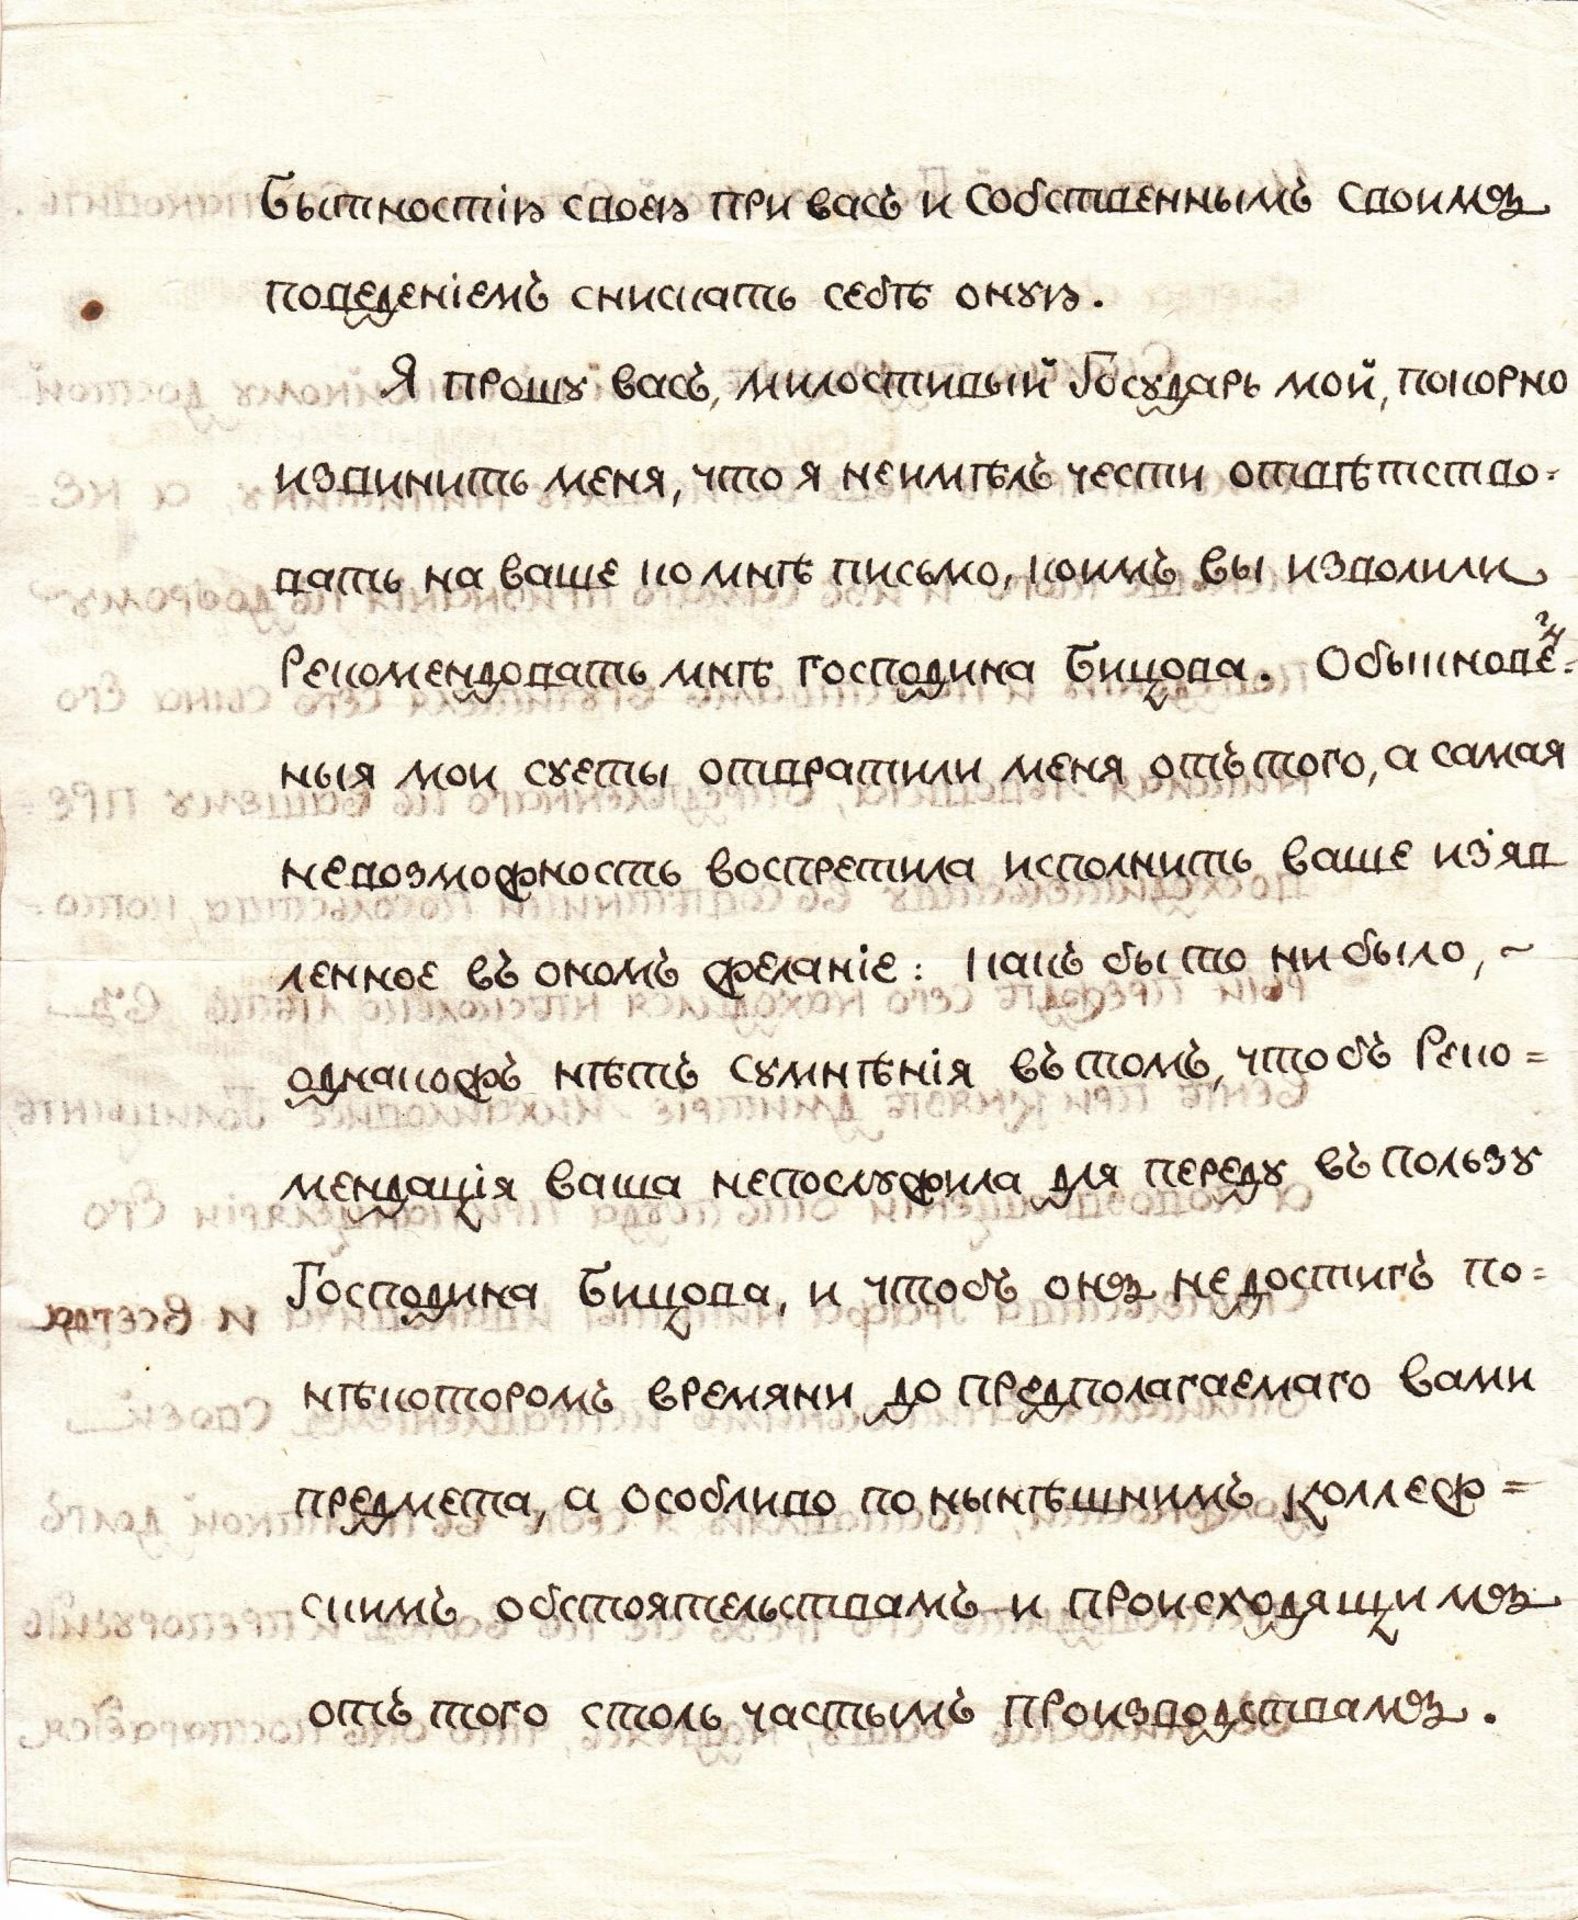 бытностію своею при васъ и собственнымъ своимъ
поведеніемъ снискать себѣ оную.
Я прошу васъ, милостивый Государь мой, покорно
извинить меня, что я неимѣлъ чести отвѣтство=
вать на ваше ко мнѣ письмо, коимъ вы изволили
рекомендовать мнѣ господина Бицова. Обыкновен=
ныя мои суеты отвратили меня отъ того, а самая
невозможность воспретила исполнить ваше изъяв
ленное въ ономъ желаніе: какъ бы то ни было, ~
однакожъ нѣтъ сумнѣнія въ томъ, чтобъ реко=
мендація ваша непослужила для переду въ пользу
Господина Бицова, и чтобъ онъ недостигъ по=
нѣкоторомъ времяни до предполагаемаго вами
предмета, а особливо по нынѣшнимъ коллеж=
скимъ обстоятельствамъ и происходящимъ
отъ того столь частымъ производствамъ.